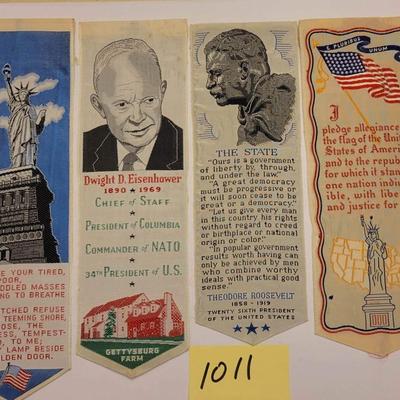 E YOUR TIRED,
POOR,
DDLED MASSES
NG TO BREATHE
TCHED REFUSE
TEEMING SHORE,
OSE, THE
ESS, TEMPEST-
D, TO ME;
Y LAMP BESIDE
LDEN DOOR.
Dwight D. Eisenhower
1890 ★ 1969
Chief of Staff
President of Columbia
Commander of NATO
34th President of U.S.
GETTYSBURG
FARM
THE STATE
"Ours is a government
of liberty by, through,
and under the law."
"A great democracy
must be progressive or
it will soon cease to be
great or a democracy."
"Let us give every man
in this country his rights
without regard to creed
or birthplace or national
origin or color."
"In popular government
results worth having can
only be achieved by men
who combine worthy
ideals with practical good
sense."
THEODORE ROOSEVELT
1858 - 1919
TWENTY SIXTH PRESIDENT
OF THE UNITED STATES
E PLURIBUS UNUM
I
pledge allegiance
the flag of the Unit
States of America
and to the republi
for which it stan
one nation indi
ible, with liber
and justice for
1011